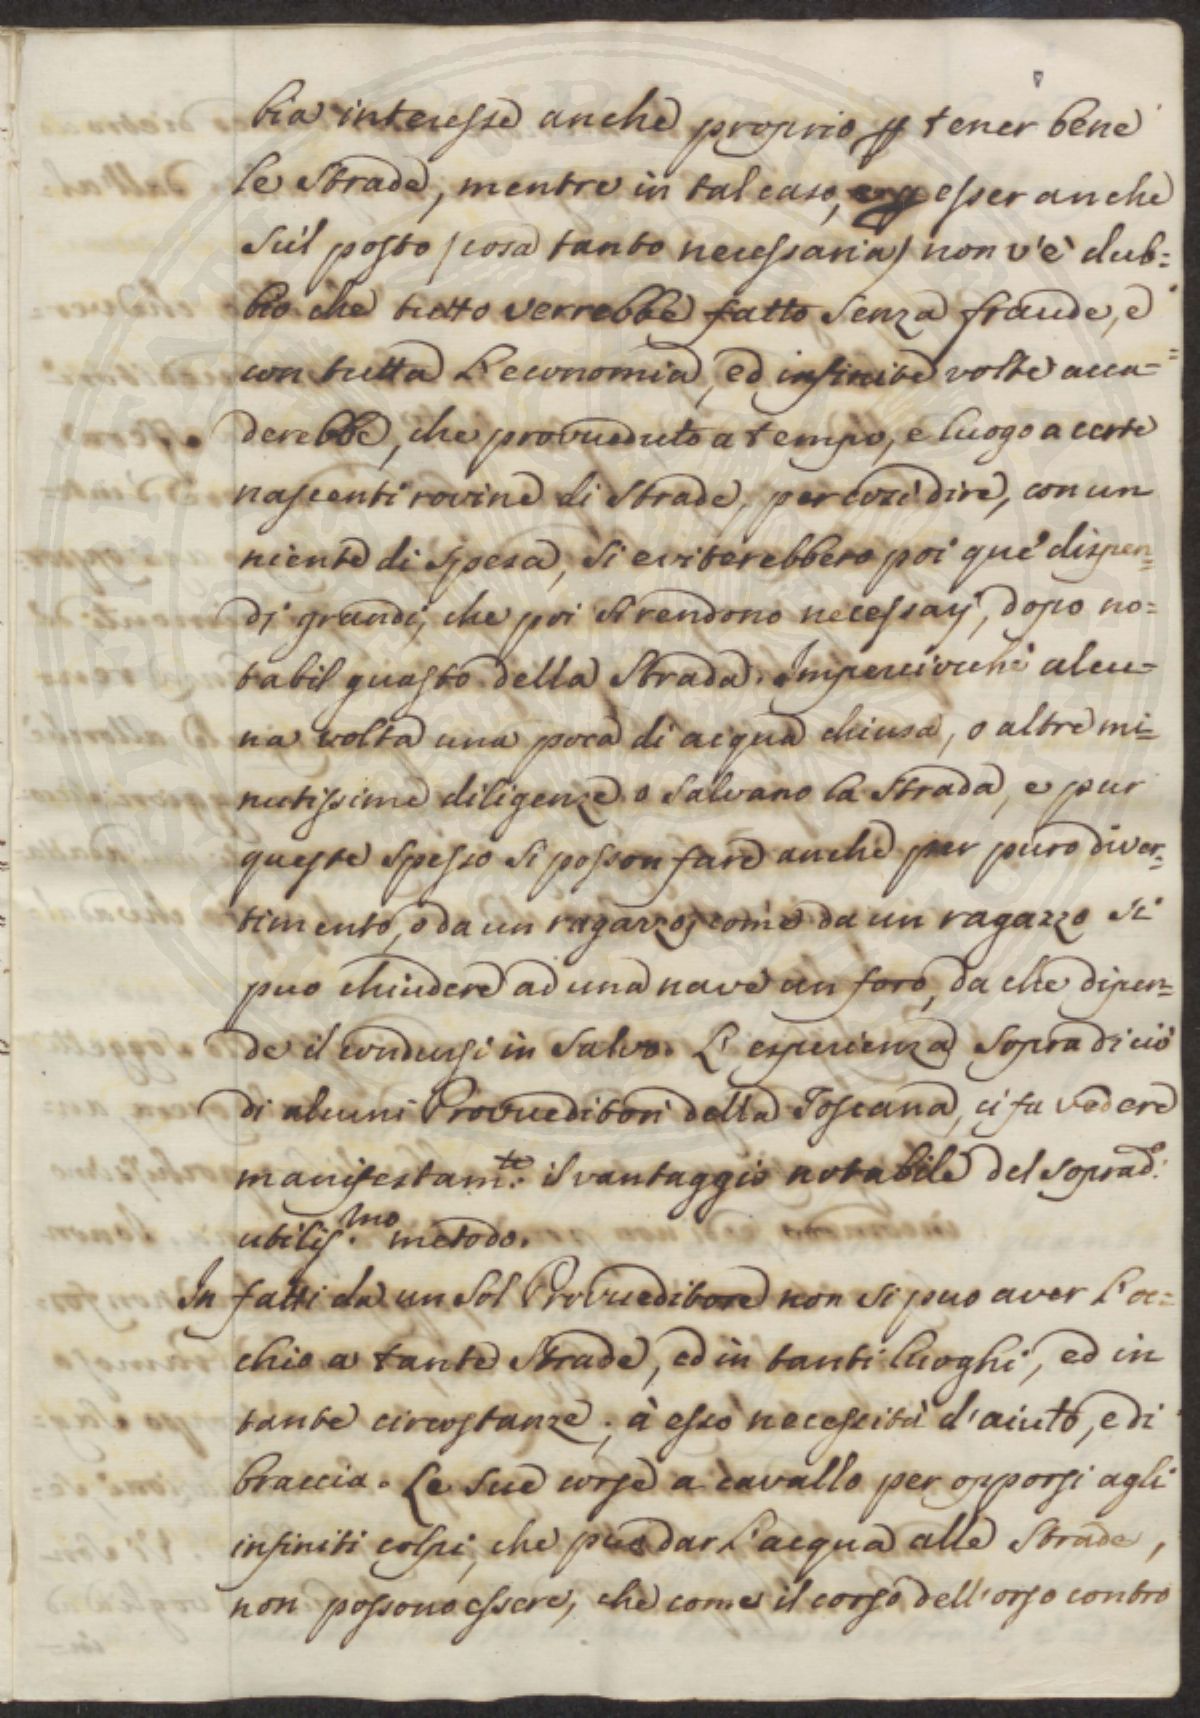 bia interesse anche proprio p tener bene
le Strade, mentre in tal caso, esser anche
sul posto (cosa tanto necessaria) non v'è dub=
bio che tutto verrebbe fatto senza fraude, e
con tutta l'economia, ed infinite volte acca=
derebbe, che provveduto a tempo, e luogo a certe
nascenti rovine di Strade, per così dire, con un
niente di spesa, si eviterebbero poi que' dispen=
dj grandi, che poi si rendono necessarj, dopo no=
tabil guasto della Strada. Imperciocchè alcu=
na volta una poca di acqua chiusa, o altre mi=
nutissime diligenze salvano la Strada, e pur
queste spesso si posson fare anche per puro diver=
timento, o da un ragazzo, come da un ragazzo si
puo chiudere ad una nave un foro, da che dipen=
de il condursi in salvo. L'esperienza sopra di ciò
di alcuni Provveditori della Toscana, ci fa vedere
manifestam.te il vantaggio notabile del soprad.o
utilis.mo metodo.
In fatti da un sol Provveditore non si puo aver l'oc=
chio a tante Strade, ed in tanti luoghi, ed in
tante circostanze, à esso necessità d'aiuto, e di
braccia. Le sue corse a cavallo per opporsi agli
infiniti colpi, che puo dar l'acqua alle Strade,
non possono essere, che come il corso dell'orso contro